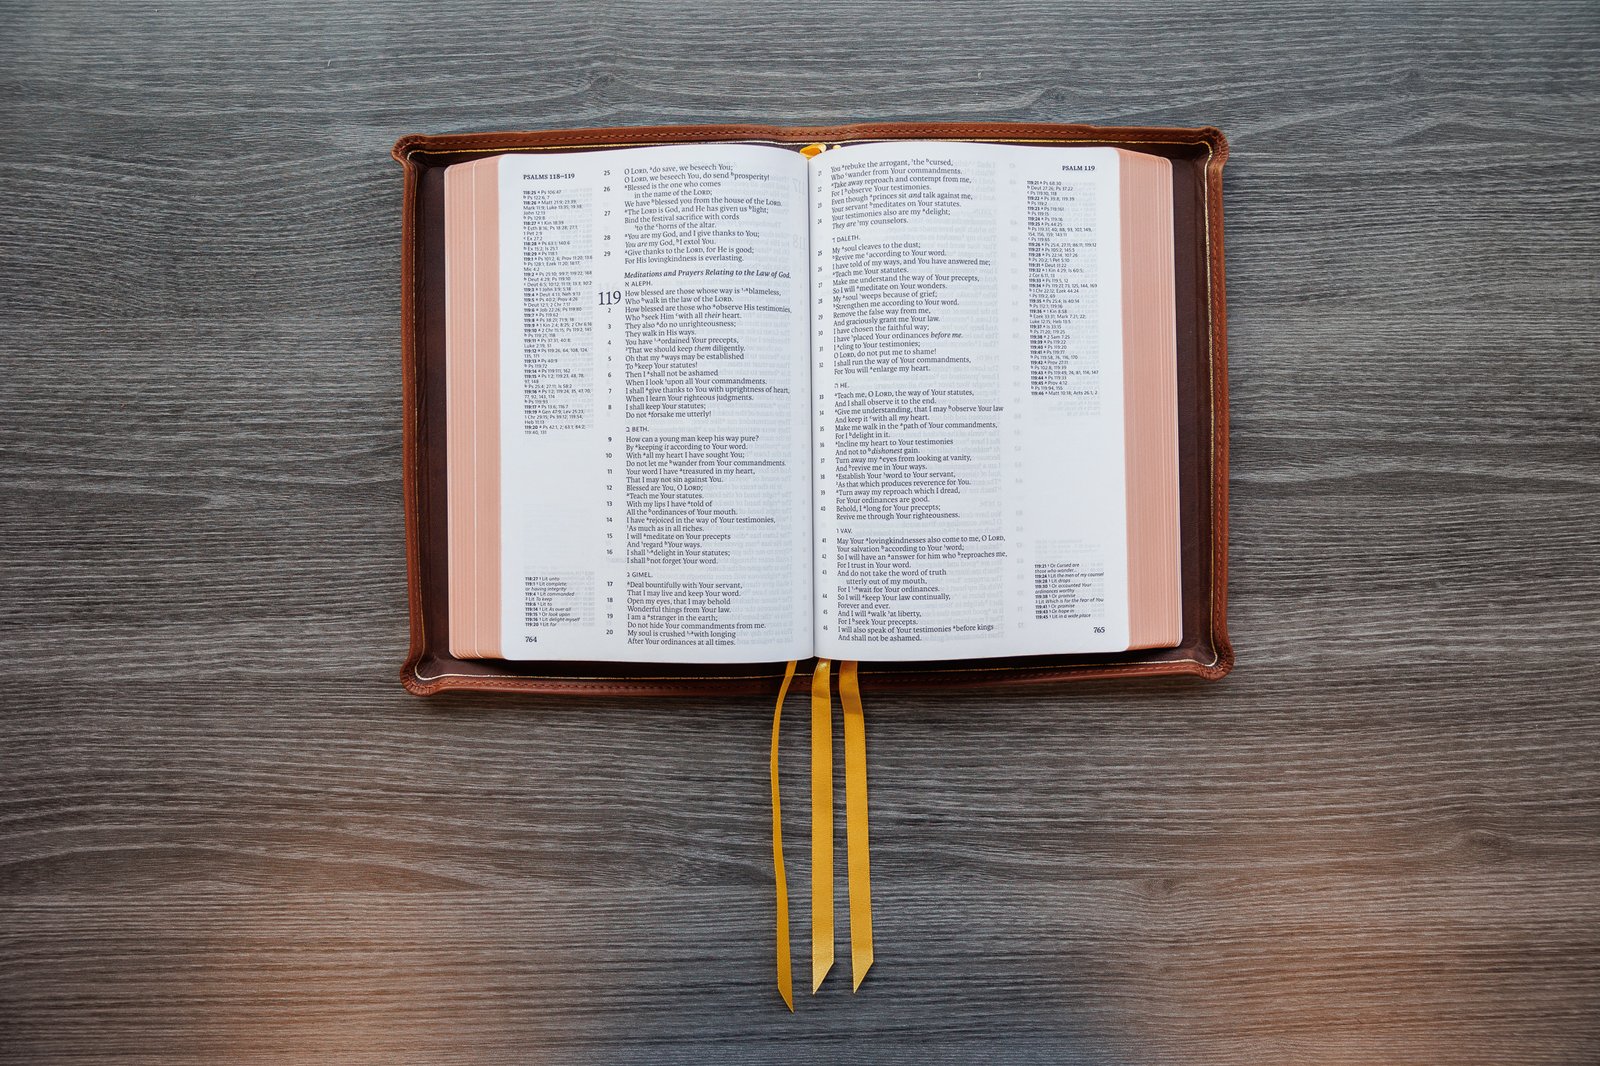 PSALMS 118–119
25 O LORD, ᵃdo save, we beseech You;
O LORD, we beseech You, do send ᵇprosperity!
26 ᵃBlessed is the one who comes
in the name of the LORD;
We have ᵇblessed you from the house of the LORD.
27 ᵃThe LORD is God, and He has given us ᵇlight;
Bind the festival sacrifice with cords
¹to the ᶜhorns of the altar.
28 ᵃYou are my God, and I give thanks to You;
You are my God, ᵇI extol You.
29 ᵃGive thanks to the LORD, for He is good;
For His lovingkindness is everlasting.
Meditations and Prayers Relating to the Law of God.
א ALEPH.
119 How blessed are those whose way is ¹·ᵃblameless,
Who ᵇwalk in the law of the LORD.
2 How blessed are those who ᵃobserve His testimonies,
Who ᵇseek Him ᶜwith all their heart.
3 They also ᵃdo no unrighteousness;
They walk in His ways.
4 You have ¹·ᵃordained Your precepts,
²That we should keep them diligently.
5 Oh that my ᵃways may be established
To ᵇkeep Your statutes!
6 Then I ᵃshall not be ashamed
When I look ¹upon all Your commandments.
7 I shall ᵃgive thanks to You with uprightness of heart,
When I learn Your righteous judgments.
8 I shall keep Your statutes;
Do not ᵃforsake me utterly!
ב BETH.
9 How can a young man keep his way pure?
By ᵃkeeping it according to Your word.
10 With ᵃall my heart I have sought You;
Do not let me ᵇwander from Your commandments.
11 Your word I have ᵃtreasured in my heart,
That I may not sin against You.
12 Blessed are You, O LORD;
ᵃTeach me Your statutes.
13 With my lips I have ᵃtold of
All the ᵇordinances of Your mouth.
14 I have ᵃrejoiced in the way of Your testimonies,
¹As much as in all riches.
15 I will ᵃmeditate on Your precepts
And ¹regard ᵇYour ways.
16 I shall ¹·ᵃdelight in Your statutes;
I shall ᵇnot forget Your word.
ג GIMEL.
17 ᵃDeal bountifully with Your servant,
That I may live and keep Your word.
18 Open my eyes, that I may behold
Wonderful things from Your law.
19 I am a ᵃstranger in the earth;
Do not hide Your commandments from me.
20 My soul is crushed ¹·ᵃwith longing
After Your ordinances at all times.
118:27 ¹ Lit unto
119:1 ¹ Lit complete
or having integrity
119:4 ¹ Lit commanded
² Lit To keep
119:6 ¹ Lit to
119:14 ¹ Lit As over all
119:15 ¹ Or look upon
119:16 ¹ Lit delight myself
119:20 ¹ Lit for
764
PSALM 119
21 You ᵃrebuke the arrogant, ¹the ᵇcursed,
Who ᶜwander from Your commandments.
22 ᵃTake away reproach and contempt from me,
For I ᵇobserve Your testimonies.
23 Even though ᵃprinces sit and talk against me,
Your servant ᵇmeditates on Your statutes.
24 Your testimonies also are my ᵃdelight;
They are ¹my counselors.
ד DALETH.
25 My ᵃsoul cleaves to the dust;
ᵇRevive me ᶜaccording to Your word.
26 I have told of my ways, and You have answered me;
ᵃTeach me Your statutes.
27 Make me understand the way of Your precepts,
So I will ᵃmeditate on Your wonders.
28 My ᵃsoul ¹weeps because of grief;
ᵇStrengthen me according to Your word.
29 Remove the false way from me,
And graciously grant me Your law.
30 I have chosen the faithful way;
I have ¹placed Your ordinances before me.
31 I ᵃcling to Your testimonies;
O LORD, do not put me to shame!
32 I shall run the way of Your commandments,
For You will ᵃenlarge my heart.
ה HE.
33 ᵃTeach me, O LORD, the way of Your statutes,
And I shall observe it to the end.
34 ᵃGive me understanding, that I may ᵇobserve Your law
And keep it ᶜwith all my heart.
35 Make me walk in the ᵃpath of Your commandments,
For I ᵇdelight in it.
36 ᵃIncline my heart to Your testimonies
And not to ᵇdishonest gain.
37 Turn away my ᵃeyes from looking at vanity,
And ᵇrevive me in Your ways.
38 ᵃEstablish Your ¹word to Your servant,
²As that which produces reverence for You.
39 ᵃTurn away my reproach which I dread,
For Your ordinances are good.
40 Behold, I ᵃlong for Your precepts;
Revive me through Your righteousness.
ו VAV.
41 May Your ᵃlovingkindnesses also come to me, O LORD,
Your salvation ᵇaccording to Your ¹word;
42 So I will have an ᵃanswer for him who ᵇreproaches me,
For I trust in Your word.
43 And do not take the word of truth
utterly out of my mouth,
For I ¹·ᵃwait for Your ordinances.
44 So I will ᵃkeep Your law continually,
Forever and ever.
45 And I will ᵃwalk ¹at liberty,
For I ᵇseek Your precepts.
46 I will also speak of Your testimonies ᵃbefore kings
And shall not be ashamed.
119:21 ¹ Or Cursed are
those who wander...
119:24 ¹ Lit the men of my counsel
119:28 ¹ Lit drops
119:30 ¹ Or accounted Your
ordinances worthy
119:38 ¹ Or promise
² Lit Which is for the fear of You
119:41 ¹ Or promise
119:43 ¹ Or hope in
119:45 ¹ Lit in a wide place
765